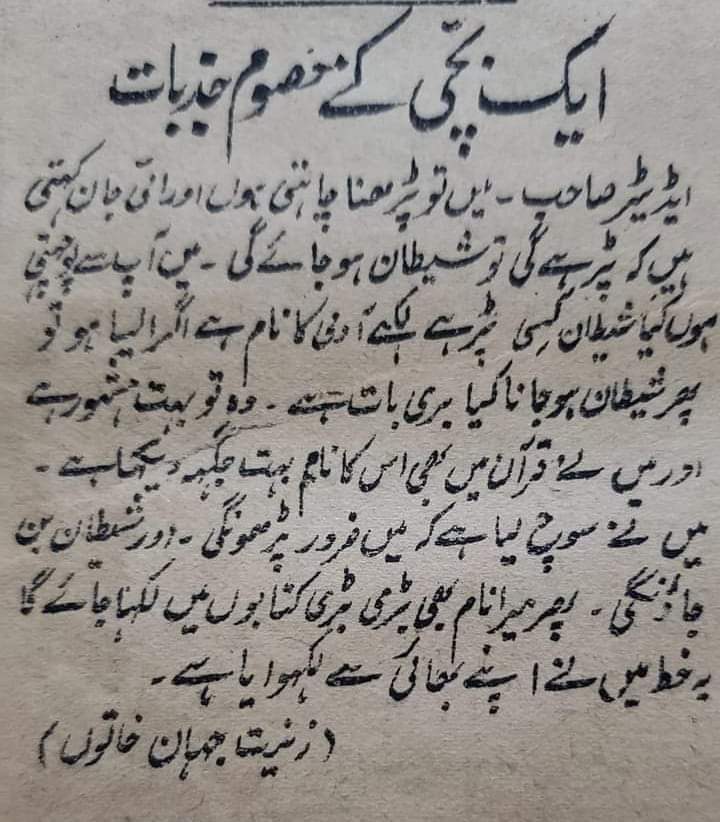 ایک بچّی کے معصوم جذبات
ایڈیٹر صاحب ۔ میں تو پڑھنا چاہتی ہوں اور امّی جان کہتی
ہیں کہ پڑہے گی تو شیطان ہو جائے گی ۔ میں آپ سے پوچھتی
ہوں کیا شیطان کسِی پڑہے لکہے آدمی کا نام ہے اگر ایسا ہو تو
پھر شیطان ہو جانا کیا بری بات ہے ۔ وہ تو بہت مشہور ہے
اور میں نے قرآن میں بھی اس کا نام بہت جگہہ دیکھا ہے ۔
میں نے سوچ لیا ہے کہ میں ضرور پڑھونگی ۔ اور شیطان بن
جاؤنگی ۔ پھر میرا نام بھی بڑی بڑی کتابوں میں لکہا جائے گا
یہ خط میں نے اپنے بھائی سے لکہوایا ہے ۔
(زینت جہان خاتون)